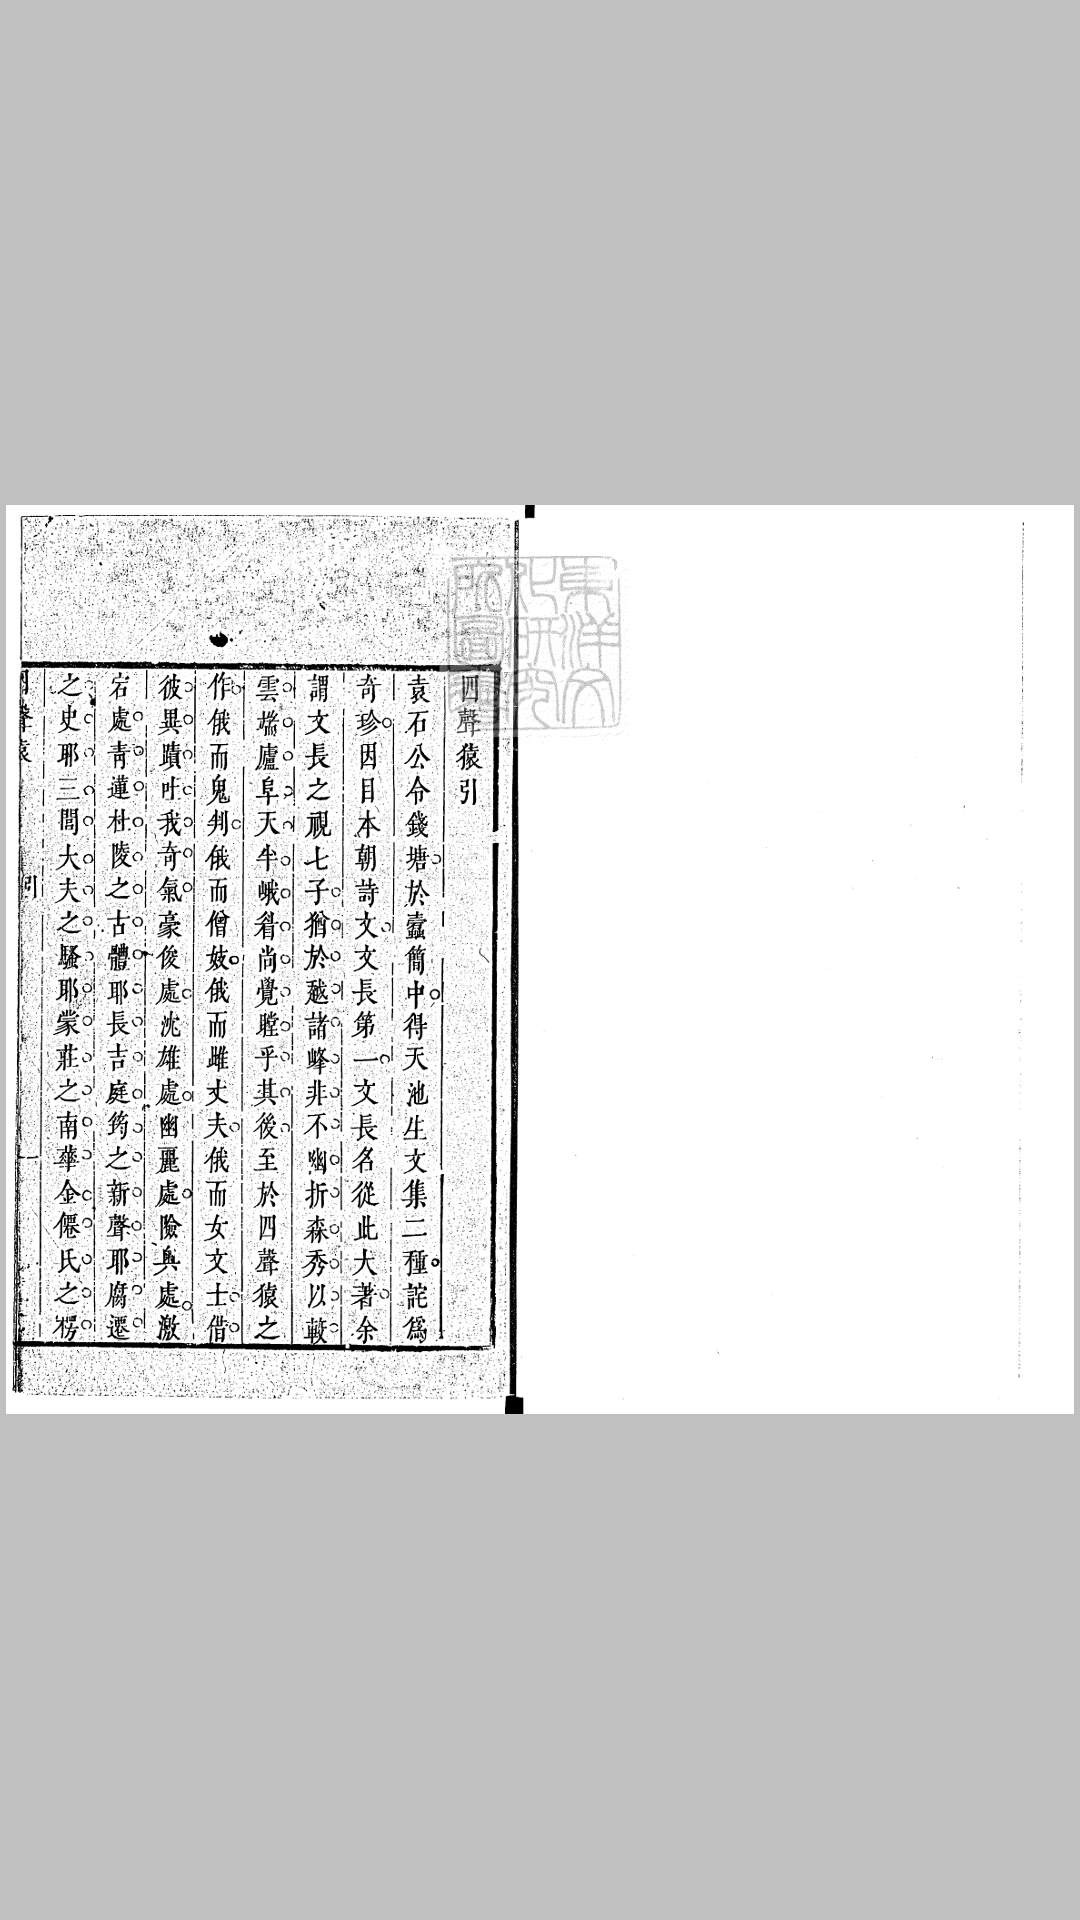 四聲猿引
袁石公令錢塘於蠹簡中得天池生文集二種詫爲
奇珍因目本朝詩文文長第一文長名從此大著余
謂文長之視七子猶於越諸峰非不幽折森秀以較
雲端廬阜天半峨眉尚覺瞠乎其後至於四聲猿之
作俄而鬼判俄而僧妓俄而雌丈夫俄而女文士借
彼異蹟吐我奇氣豪俊處沈雄處幽麗處險奧處激
宕處青蓮杜陵之古體耶長吉庭筠之新聲耶腐遷
之史耶三閭大夫之騷耶蒙莊之南華金僊氏之楞
四聲猿
引
一
東洋文
化研究
所圖書